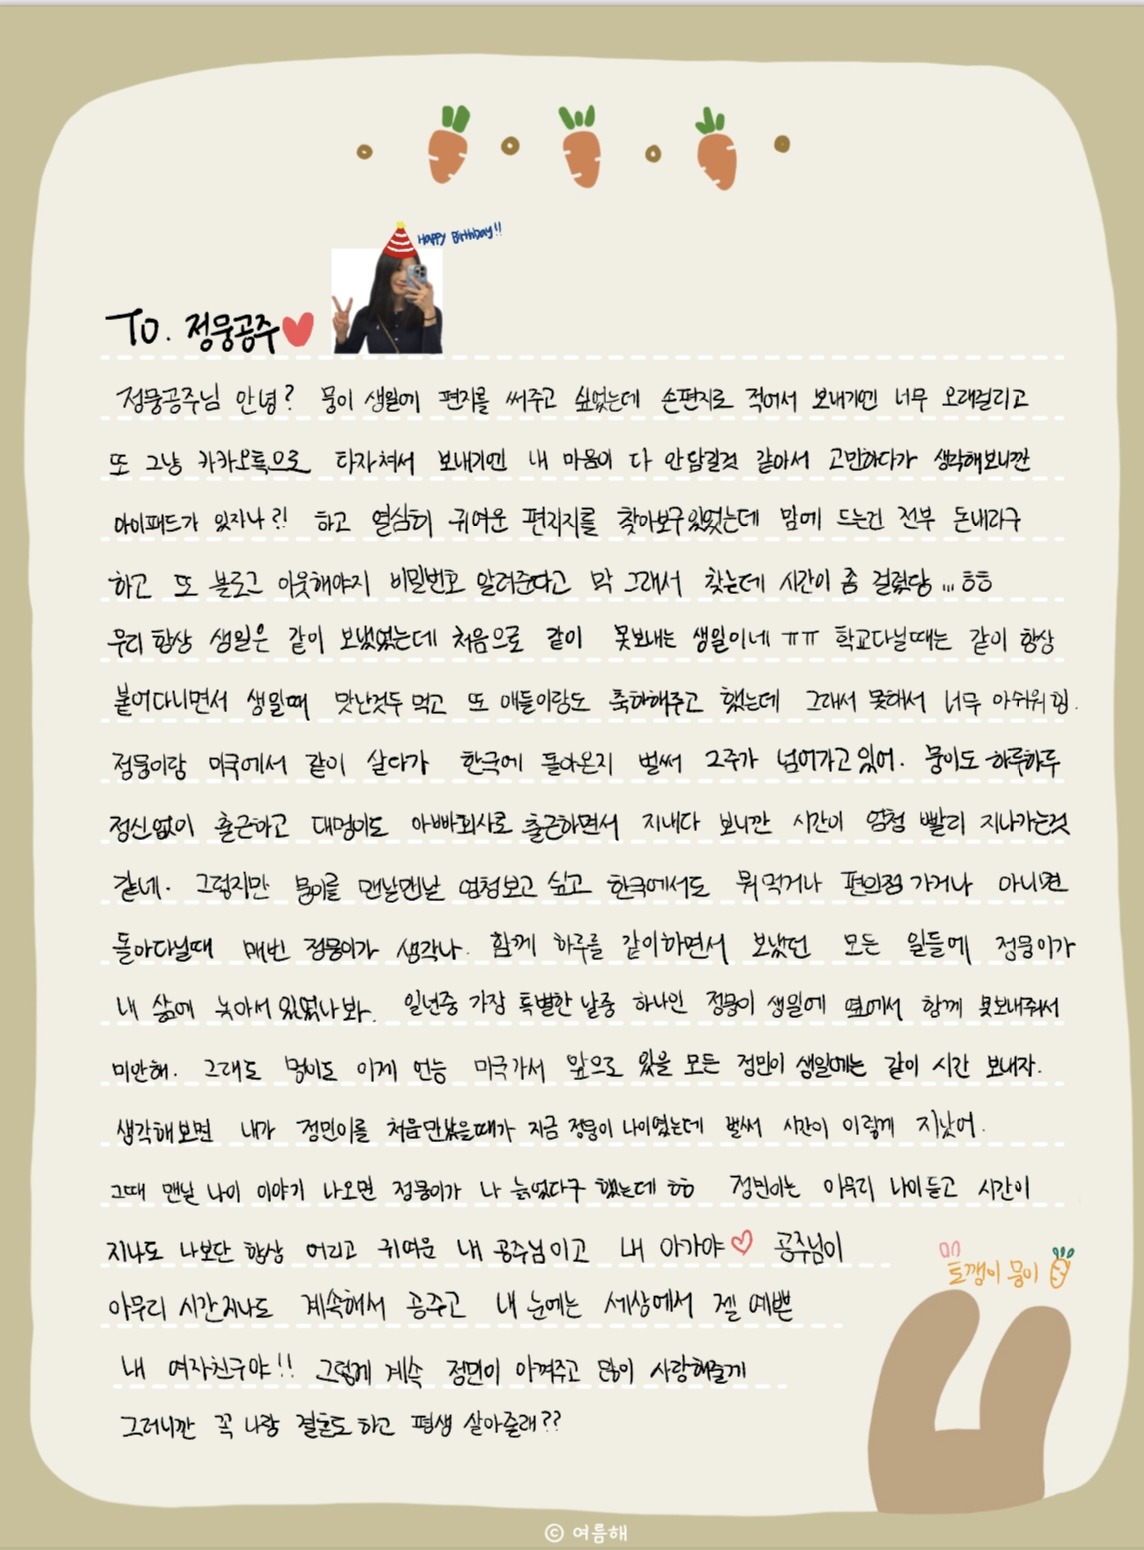 Happy Birthday!!
To. 정뭉공주
정뭉공주님 안녕? 뭉이 생일에 편지를 써주고 싶었는데 손편지로 적어서 보내기엔 너무 오래걸리고
또 그냥 카카오톡으로 타자쳐서 보내기엔 내 마음이 다 안담길것 같아서 고민하다가 생각해보니깐
아이패드가 있자나?! 하고 열심히 귀여운 편지지를 찾아보구있었는데 맘에 드는건 전부 돈내라구
하고 또 블로그 이웃해야지 비밀번호 알려준다고 막 그래서 찾는데 시간이 좀 걸렸당 ... ㅎㅎ
우리 항상 생일은 같이 보냈었는데 처음으로 같이 못보내는 생일이네 ㅠㅠ 학교다닐때는 같이 항상
붙어다니면서 생일때 맛난것두 먹고 또 애들이랑도 축하해주고 했는데 그래서 못해서 너무 아쉬워힝.
정뭉이랑 미국에서 같이 살다가 한국에 돌아온지 벌써 2주가 넘어가고있어. 뭉이도 하루하루
정신없이 출근하고 대멍이도 아빠회사로 출근하면서 지내다 보니깐 시간이 엄청 빨리 지나가는것
같네. 그렇지만 뭉이를 맨날맨날 엄청보고 싶고 한국에서도 뭐먹거나 편의점 가거나 아니면
돌아다닐때 매번 정뭉이가 생각나. 함께 하루를 같이하면서 보냈던 모든 일들에 정뭉이가
내 삶에 녹아서있었나봐. 일년중 가장 특별한 날중 하나인 정뭉이 생일에 옆에서 함께 못보내줘서
미안해. 그래도 멍이도 이제 언능 미국가서 앞으로 있을 모든 정민이 생일에는 같이 시간 보내자.
생각해보면 내가 정민이를 처음만났을때가 지금 정뭉이 나이였는데 벌써 시간이 이렇게 지났어.
그때 맨날 나이 이야기 나오면 정뭉이가 나 늙었다구 했는데 ㅎㅎ 정민이는 아무리 나이들고 시간이
지나도 나보단 항상 어리고 귀여운 내 공주님이고 내 아가야 공주님이
아무리 시간지나도 계속해서 공주고 내 눈에는 세상에서 젤 예쁜
내 여자친구야!! 그렇게 계속 정민이 아껴주고 많이 사랑해줄게
그러니깐 꼭 나랑 결혼도 하고 평생 살아줄래??
토깽이 뭉이
© 여름해